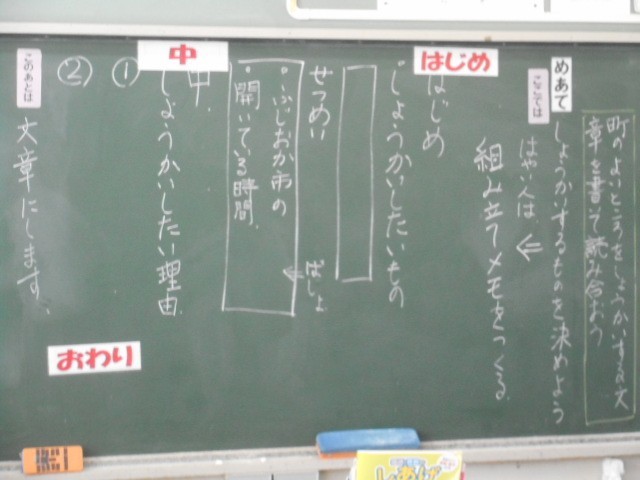 町のよいところをしょうかいする文
章を書いて読み合おう
めあて
しょうかいするものを決めよう
ここでは
はやい人は
組み立てメモをつくる
はじめ
はじめ
・しょうかいしたいもの
せつめい
ばしょ
・ふじおか市の
・開いている時間
中
中
しょうかいしたい理由
①
②
このあとは
文章にします。
おわり